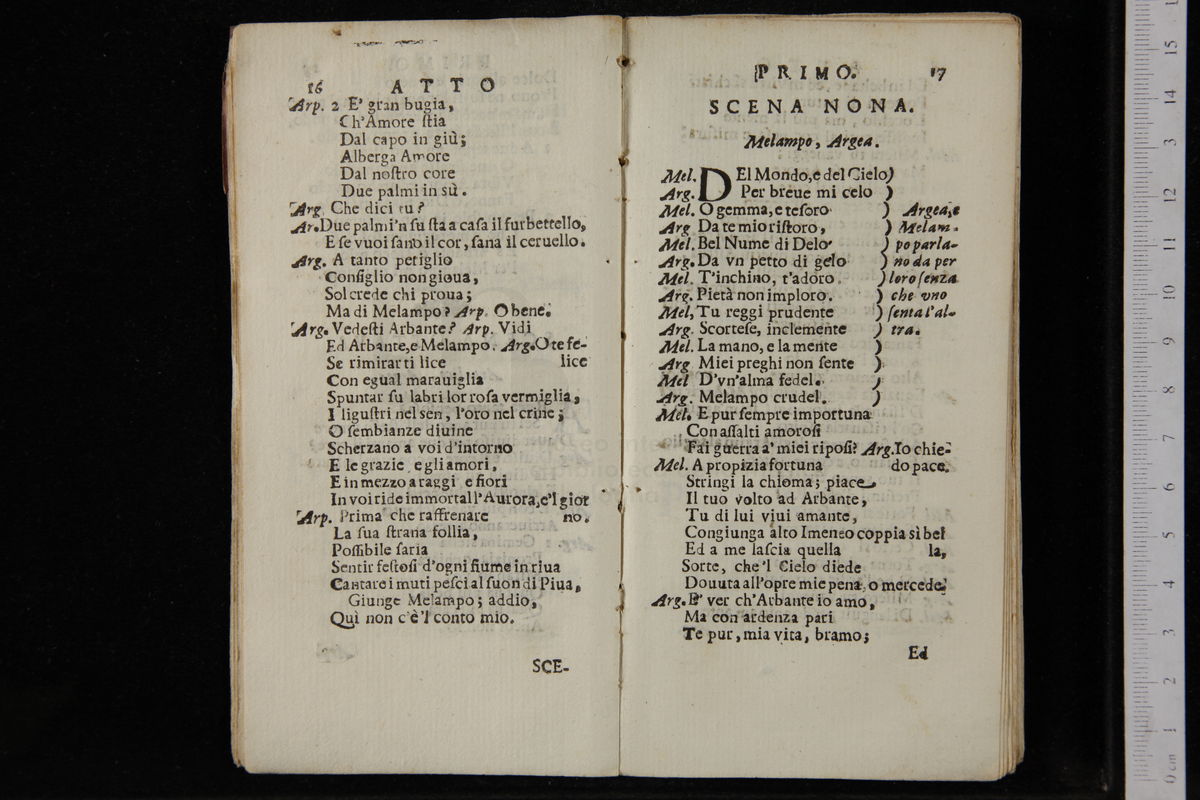 16 ATTO
Arp. 2 E' gran bugia,
Ch'Amore ſtia
Dal capo in giù;
Alberga Amore
Dal noſtro core
Due palmi in sù.
Arg. Che dici tu?
Ar. Due palmi'n ſu ſta a caſa il furbettello,
E ſe vuoi ſano il cor, ſana il ceruello.
Arg. A tanto periglio
Conſiglio non gioua,
Sol crede chi proua;
Ma di Melampo? Arp. O bene.
Arg. Vedeſti Arbante? Arp. Vidi
Ed Arbante, e Melampo. Arg. O te fe-
Se rimirarti lice lice
Con egual marauiglia
Spuntar ſu labri lor roſa vermiglia,
I liguſtri nel sen, l'oro nel crine;
O ſembianze diuine
Scherzano a voi d'intorno
E le grazie e gli amori,
E in mezzo a raggi e fiori
In voi ride immortal l'Aurora, e'l gior
Arp. Prima che raffrenare no.
La ſua ſtrana follia,
Poſſibile ſaria
Sentir feſtoſi d'ogni fiume in riua
Cantare i muti peſci al ſuon di Piua,
Giunge Melampo; addio,
Quì non c'è 'l conto mio.
SCE-
PRIMO. 17
SCENA NONA.
Melampo, Argea.
Mel. DEl Mondo, e del Cielo)
Arg. Per breue mi celo )
Mel. O gemma, e teſoro ) Argea, e
Arg. Da te mio riſtoro, ) Melam-
Mel. Bel Nume di Delo ) po parla-
Arg. Da vn petto di gelo ) no da per
Mel. T'inchino, t'adoro. ) loro ſenza
Arg. Pietà non imploro. ) che vno
Mel, Tu reggi prudente ) ſenta l'al-
Arg. Scorteſe, inclemente ) tra.
Mel. La mano, e la mente )
Arg Miei preghi non ſente )
Mel D'vn'alma fedel. )
Arg. Melampo crudel. )
Mel. E pur ſempre importuna
Con aſſalti amoroſi
Fai guerra a' miei ripoſi? Arg. Io chie-
Mel. A propizia fortuna do pace.
Stringi la chioma; piace
Il tuo volto ad Arbante,
Tu di lui viui amante,
Congiunga alto Imeneo coppia sì bel
Ed a me laſcia quella la,
Sorte, che 'l Cielo diede
Douuta all'opre mie pena, o mercede.
Arg. E' ver ch'Arbante io amo,
Ma con ardenza pari
Te pur, mia vita, bramo;
Ed